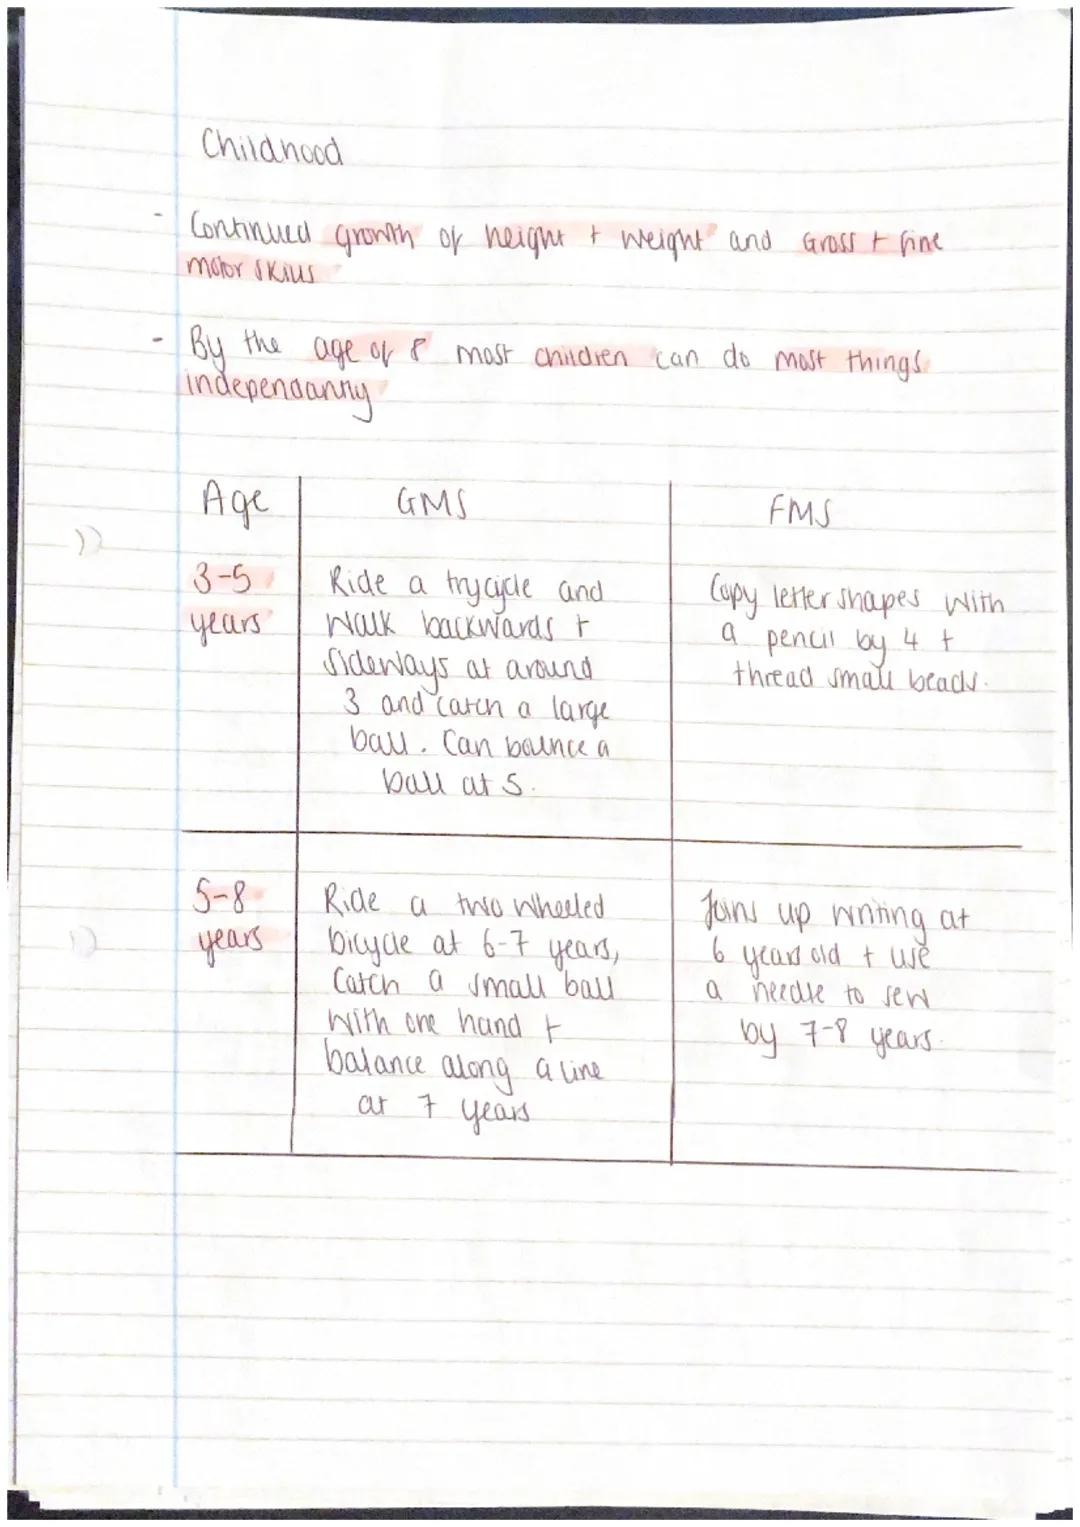 Childhood
- Continued growth of height + weight and Gross + fine
motor skills
- By the age of 8 most children can do most things
independantly
Age GMS FMS
3-5
years
Ride a trycycle and
walk backwards +
sideways at around
3 and catch a large
ball. Can bounce a
ball at 5.
Copy letter shapes with
a pencil by 4 +
thread small beads.
5-8
years
Ride a two wheeled
bicycle at 6-7 years,
Catch a small ball
with one hand +
balance along a line
at 7 years
Joins up writing at
6 years old + use
a needle to sew
by 7-8 years.